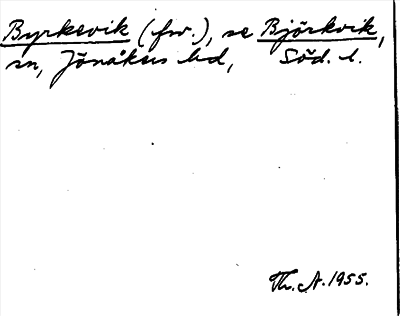 Byrkesvik (fw.), se Björkvik,
sn, Jönåkers hd, Söd. l.
Th. A. 1955.